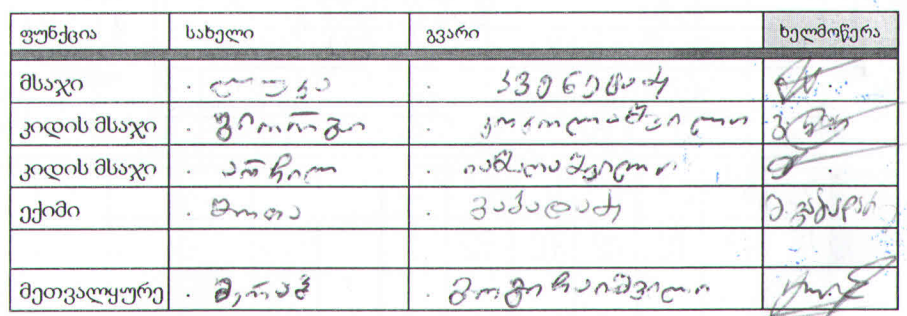 ფუნქცია სახელი გვარი ხელმოწერა
მსაჯი ლუკა კვენეტაძე
კიდის მსაჯი გიორგი კოკოლაშვილი
კიდის მსაჯი არჩილ იაშალაშვილი
ექიმი შოთა გაბადაძე
მეთვალყურე მერაბ გოგიჩაიშვილი